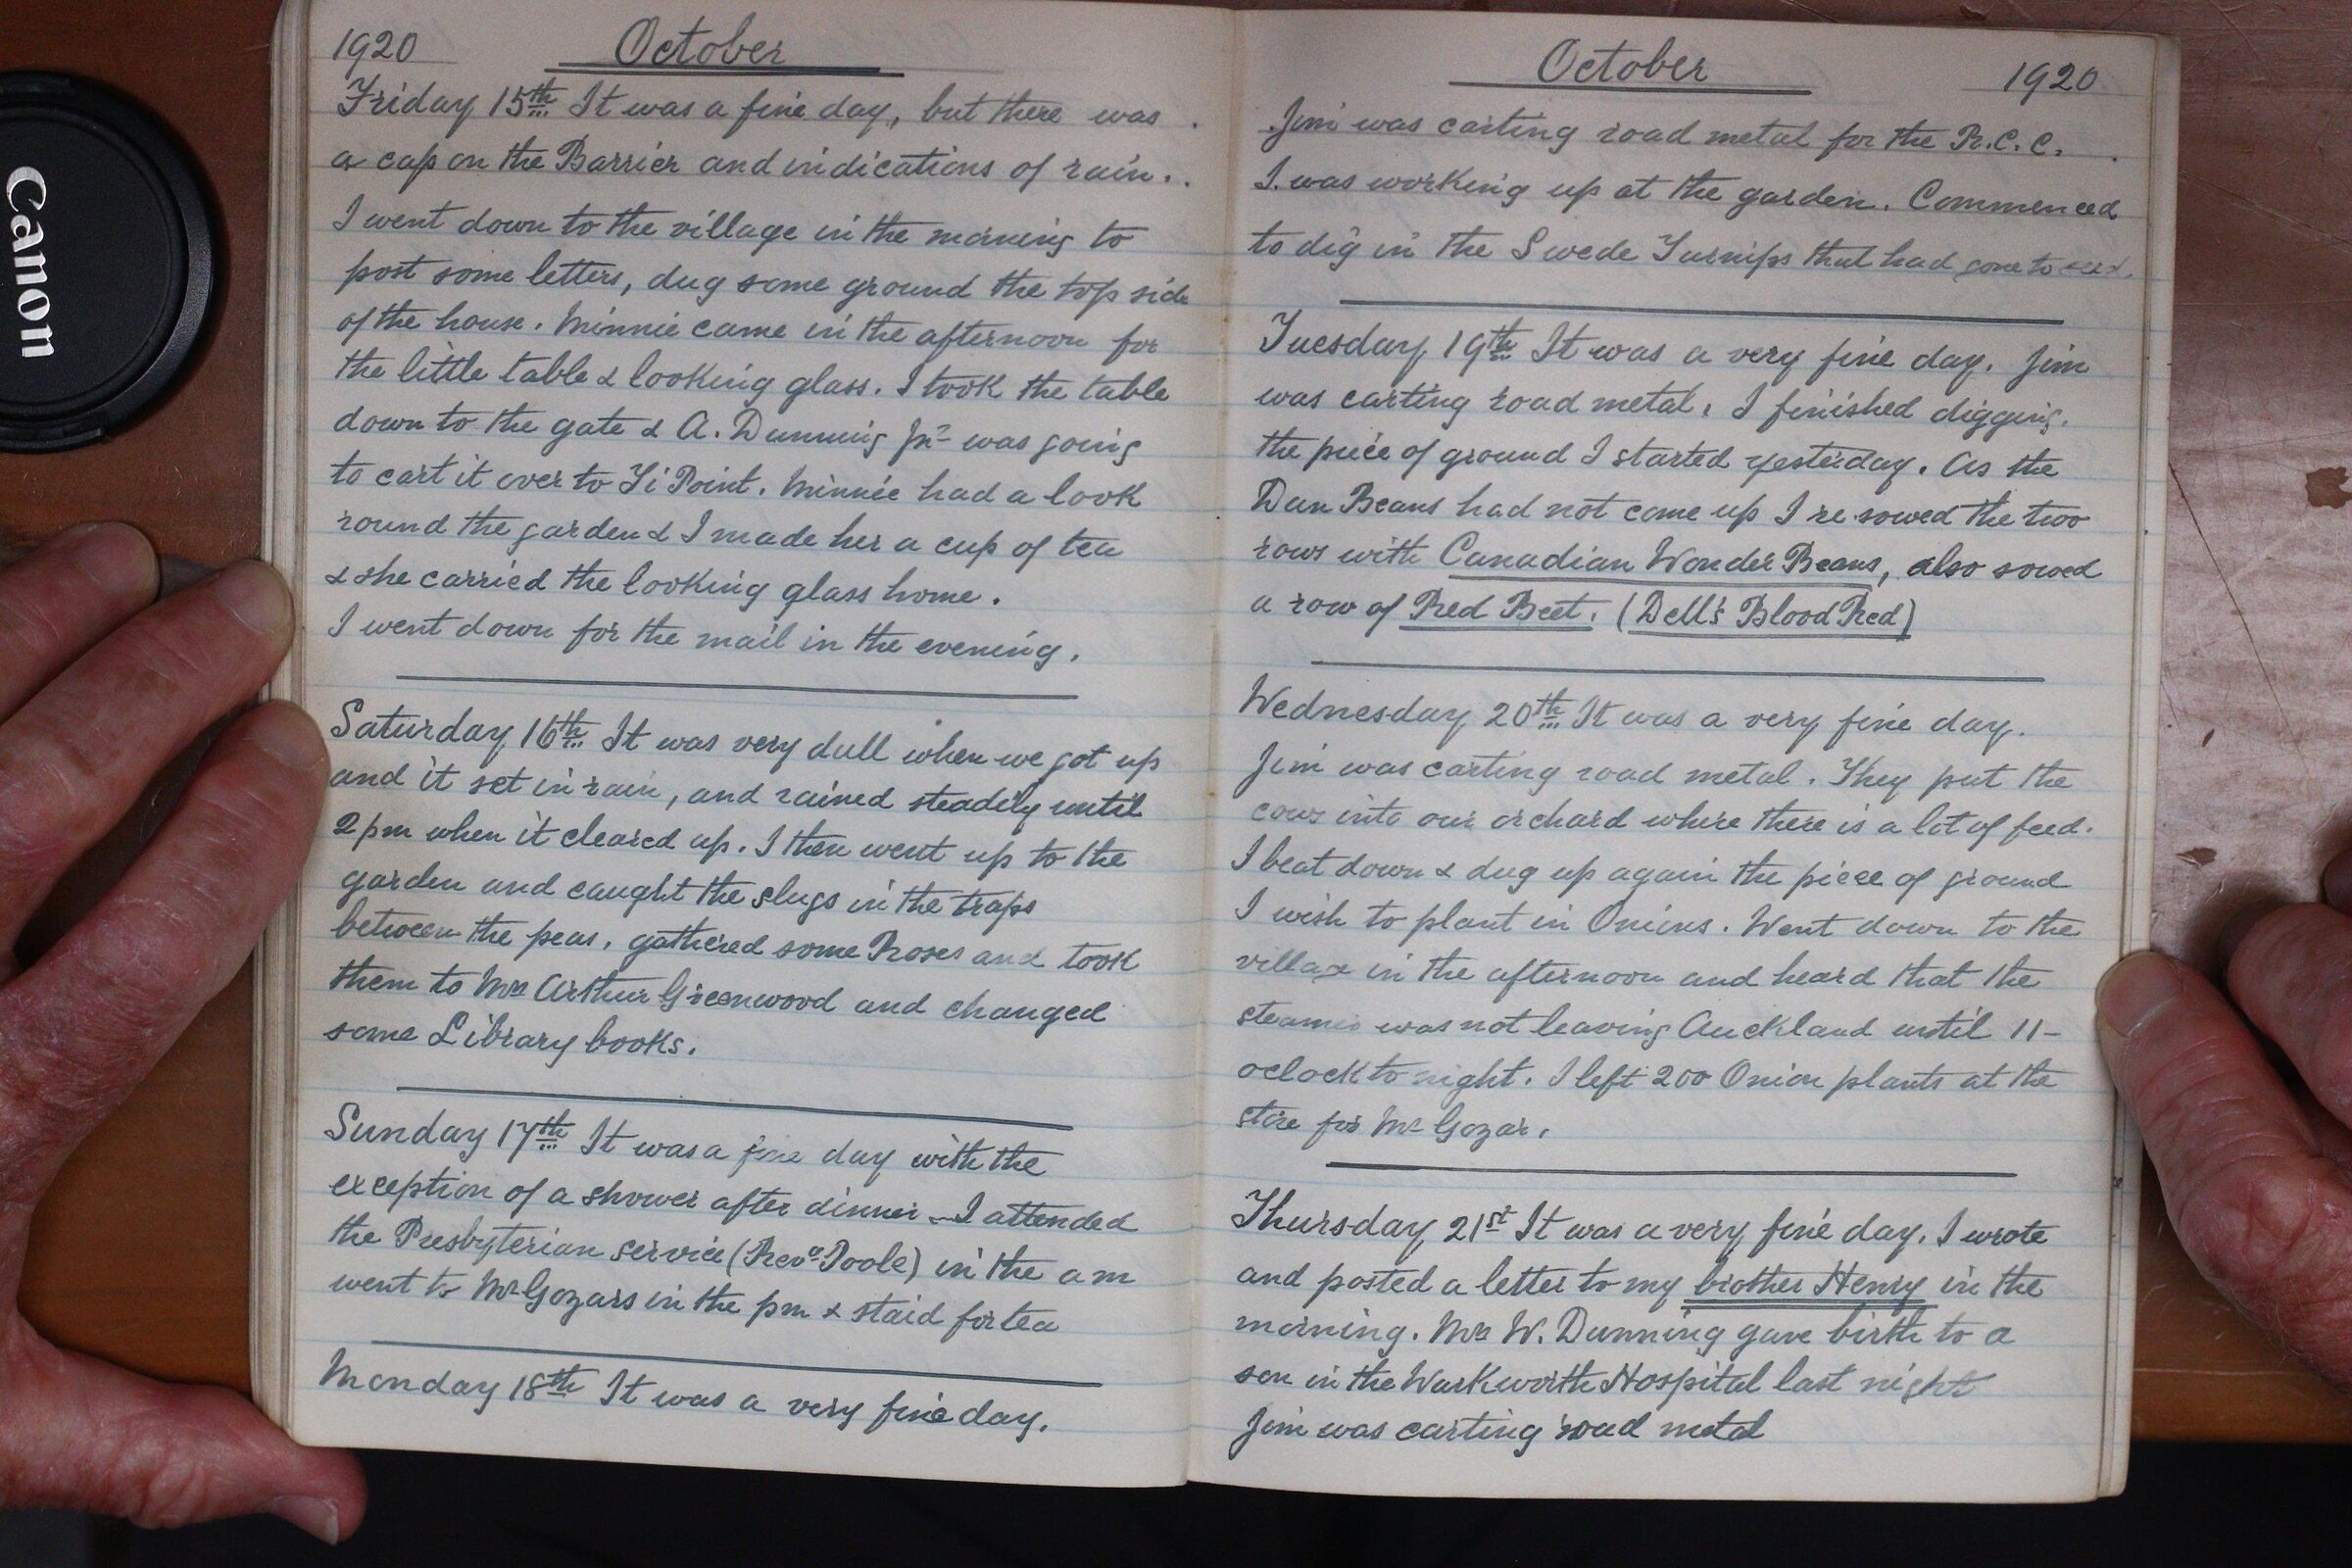 Canon
1920 October
Friday 15th It was a fine day, but there was
a cap on the Barrier and indications of rain.
I went down to the village in the morning to
post some letters, dug some ground the top side
of the house. Minnie came in the afternoon for
the little table & looking glass. I took the table
down to the gate & A. Dunning Jnr was going
to cart it over to Ti Point. Minnie had a look
round the garden & I made her a cup of tea
& she carried the looking glass home.
I went down for the mail in the evening.
Saturday 16th It was very dull when we got up
and it set in rain, and rained steadily until
2 pm when it cleared up. I then went up to the
garden and caught the slugs in the traps
between the peas, gathered some Roses and took
them to Mrs Arthur Greenwood and changed
some Library books.
Sunday 17th It was a fine day with the
exception of a shower after dinner - I attended
the Presbyterian service (Revd Poole) in the am
went to Mr Gozars in the pm & staid for tea
Monday 18th It was a very fine day.
October 1920
Jim was carting road metal for the R.C.C.
I was working up at the garden. Commenced
to dig in the Swede Turnips that had gone to seed.
Tuesday 19th It was a very fine day. Jim
was carting road metal, I finished digging
the piece of ground I started yesterday. As the
Dun Beans had not come up I re-sowed the two
rows with Canadian Wonder Beans, also sowed
a row of Red Beet. (Dell's Blood Red)
Wednesday 20th It was a very fine day.
Jim was carting road metal. They put the
cows into our orchard where there is a lot of feed.
I beat down & dug up again the piece of ground
I wish to plant in Onions. Went down to the
village in the afternoon and heard that the
steamer was not leaving Auckland until 11-
oclock to night. I left 200 Onion plants at the
store for Mr Gozar.
Thursday 21st It was a very fine day. I wrote
and posted a letter to my brother Henry in the
morning. Mrs W. Dunning gave birth to a
son in the Warkworth Hospital last night
Jim was carting road metal